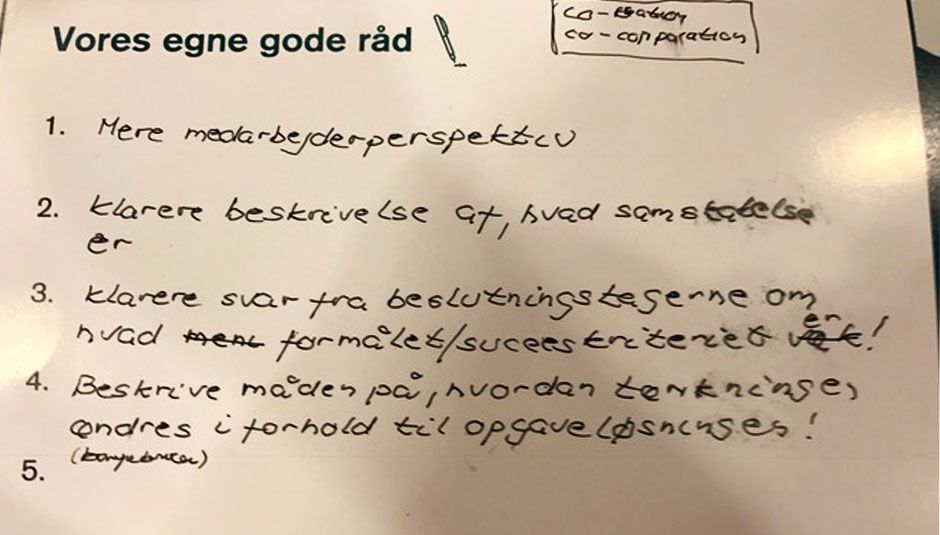 Vores egne gode råd
co-
co-
1. Mere medarbejderperspektiv
2. Klarere beskrivelse af, hvad samskabelse
er
3. Klarere svar fra beslutningstagerne om
hvad formålet/succeskriteriet er!
4. Beskrive måden på, hvordan tænkningen
ændres i forhold til opgaveløsningen!
(kompetencer)
5.